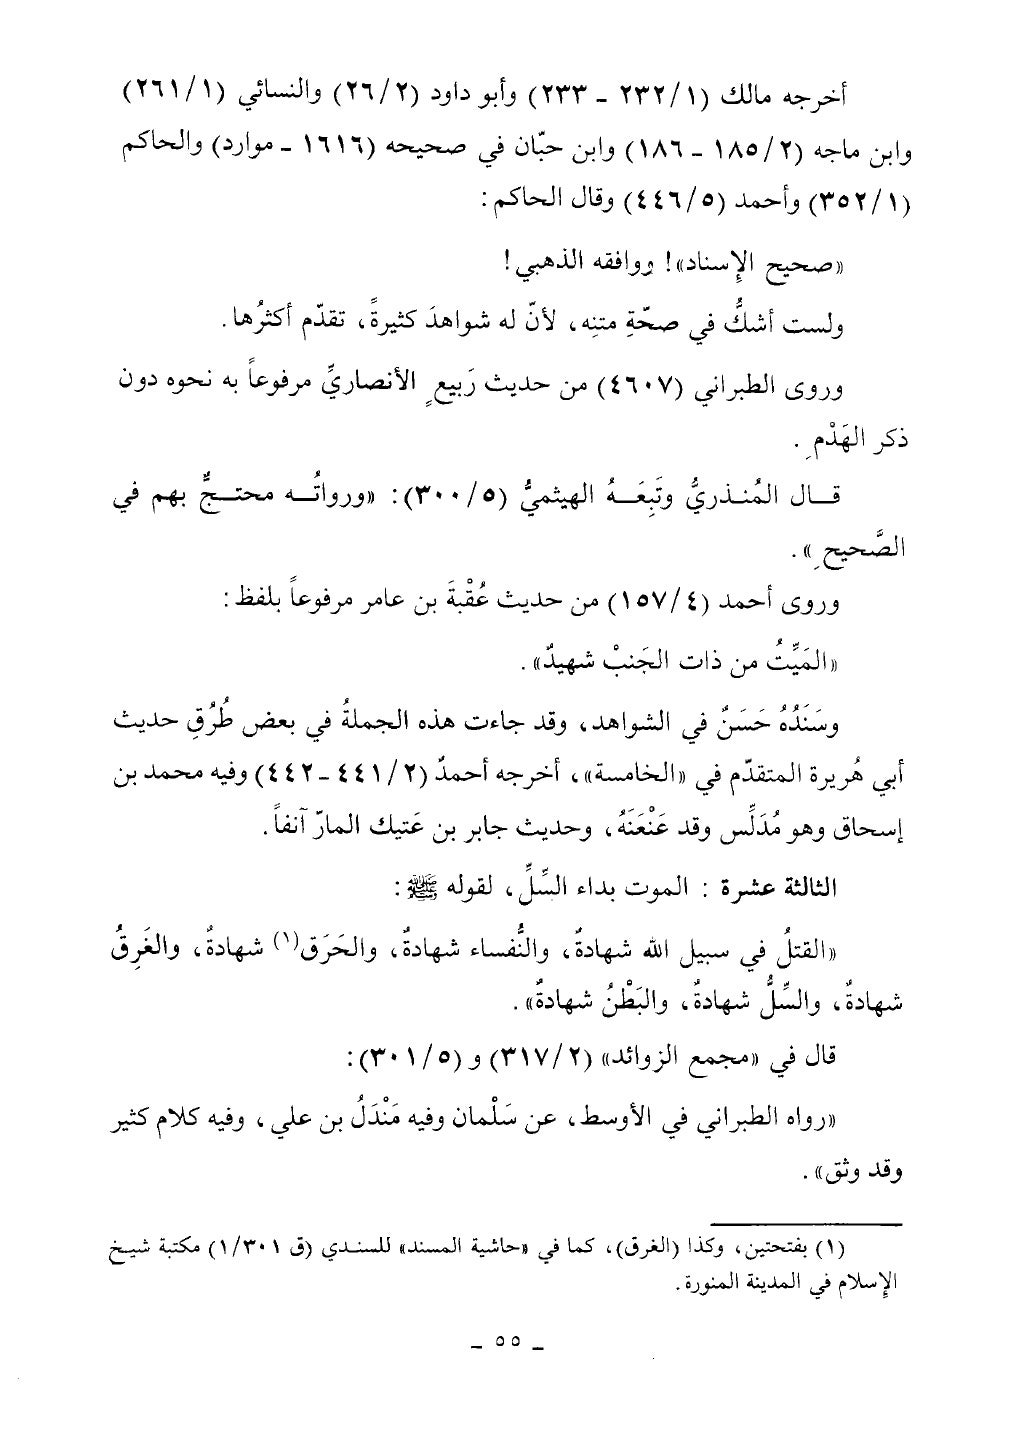 أخرجه مالك (١/ ٢٣٢ ـ ٢٣٣) وأبو داود (٢/ ٢٦) والنسائي (١/ ٢٦١)
وابن ماجه (٢/ ١٨٥ ـ ١٨٦) وابن حبّان في صحيحه (١٦١٦ ـ موارد) والحاكم
(١/ ٣٥٢) وأحمد (٥/ ٤٤٦) وقال الحاكم:
«صحيح الإسناد»! ووافقه الذهبي!
ولست أشكُّ في صحّةِ متنِه، لأنّ له شواهدَ كثيرةً، تقدّم أكثرُها.
وروى الطبراني (٤٦٠٧) من حديث رَبيعٍ الأنصاريِّ مرفوعاً به نحوه دون
ذكر الهَدْمِ.
قال المُنذريُّ وتَبِعَهُ الهيثميُّ (٥/ ٣٠٠): «ورواتُه محتجٌّ بهم في
الصَّحيحِ».
وروى أحمد (٤/ ١٥٧) من حديث عُقْبةَ بن عامر مرفوعاً بلفظ:
«المَيِّتُ من ذات الجَنبْ شهيدٌ».
وسَنَدُهُ حَسَنٌ في الشواهد، وقد جاءت هذه الجملةُ في بعض طُرُقِ حديث
أبي هُريرة المتقدّم في «الخامسة»، أخرجه أحمدٌ (٢/ ٤٤١ ـ٤٤٢) وفيه محمد بن
إسحاق وهو مُدَلِّس وقد عَنْعَنَهُ، وحديث جابر بن عَتيك المارّ آنفاً.
الثالثة عشرة : الموت بداء السِّلِّ، لقوله ﷺ:
«القتلُ في سبيل الله شهادةٌ، والنُّفساء شهادةٌ، والحَرَق(١) شهادةٌ، والغَرِقُ
شهادةٌ، والسِّلُّ شهادةٌ، والبَطْنُ شهادةٌ».
قال في «مجمع الزوائد» (٢/ ٣١٧) و (٥/ ٣٠١):
«رواه الطبراني في الأوسط، عن سَلْمان وفيه مَنْدَلُ بن علي، وفيه كلام كثير
وقد وثق».
(١) بفتحتين، وكذا (الغرق)، كما في «حاشية المسند» للسندي (ق ٣٠١/ ١) مكتبة شيخ
الإسلام في المدينة المنورة.
ـ ٥٥ ـ